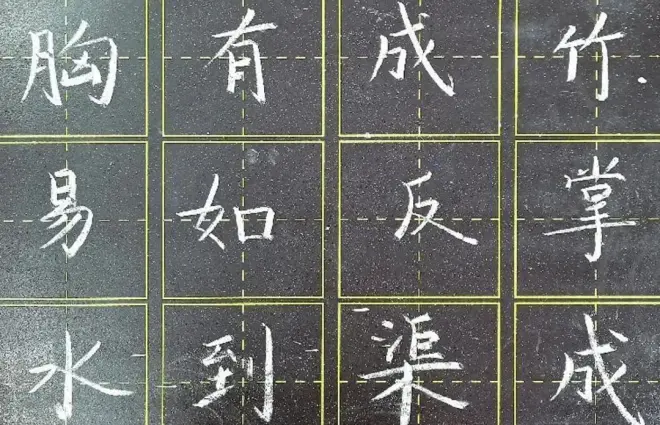 胸有成竹.
易如反掌
水到渠成